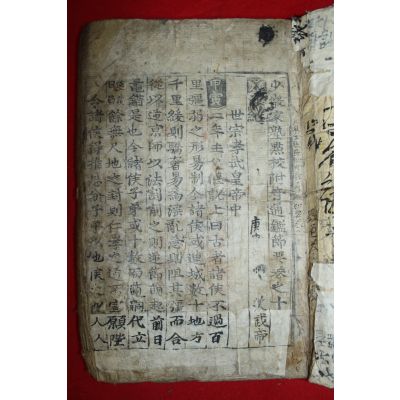 少微家塾點校附音通鑑節要卷之十
漢紀
世宗孝武皇帝中
庚申 漢武帝
二年主父偃說上曰古者諸侯不過百
里彊弱之形易制今諸侯或連城數十地方
千里緩則驕奢易爲淫亂急則阻其彊而合
從以逆京師以法割削之則逆節萌起前日
鼂錯是也今諸侯子弟或十數而適嗣代立
餘無尺地之封則仁孝之道不宣願陛
令諸侯得推恩分子弟以地侯之彼人人